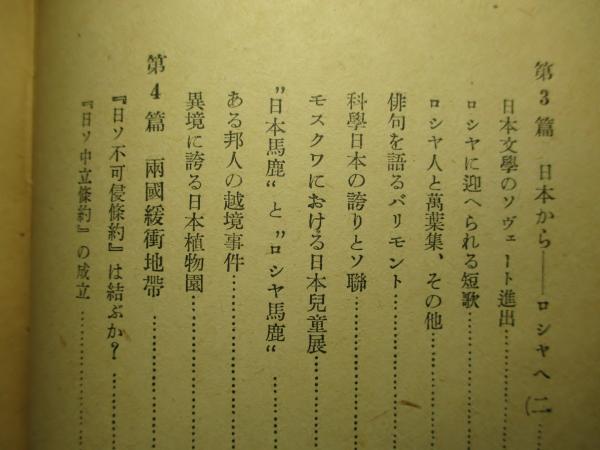 第3篇 日本から——ロシヤへ(二
日本文學のソヴェート進出
ロシヤに迎へられる短歌
ロシヤ人と萬葉集、その他
俳句を語るバリモント
科學日本の誇りとソ聯
モスクワにおける日本兒童展
"日本馬鹿" と "ロシヤ馬鹿"
ある邦人の越境事件
異境に誇る日本植物園
第4篇 兩國緩衝地帶
『日ソ不可侵條約』は結ぶか?
『日ソ中立條約』の成立